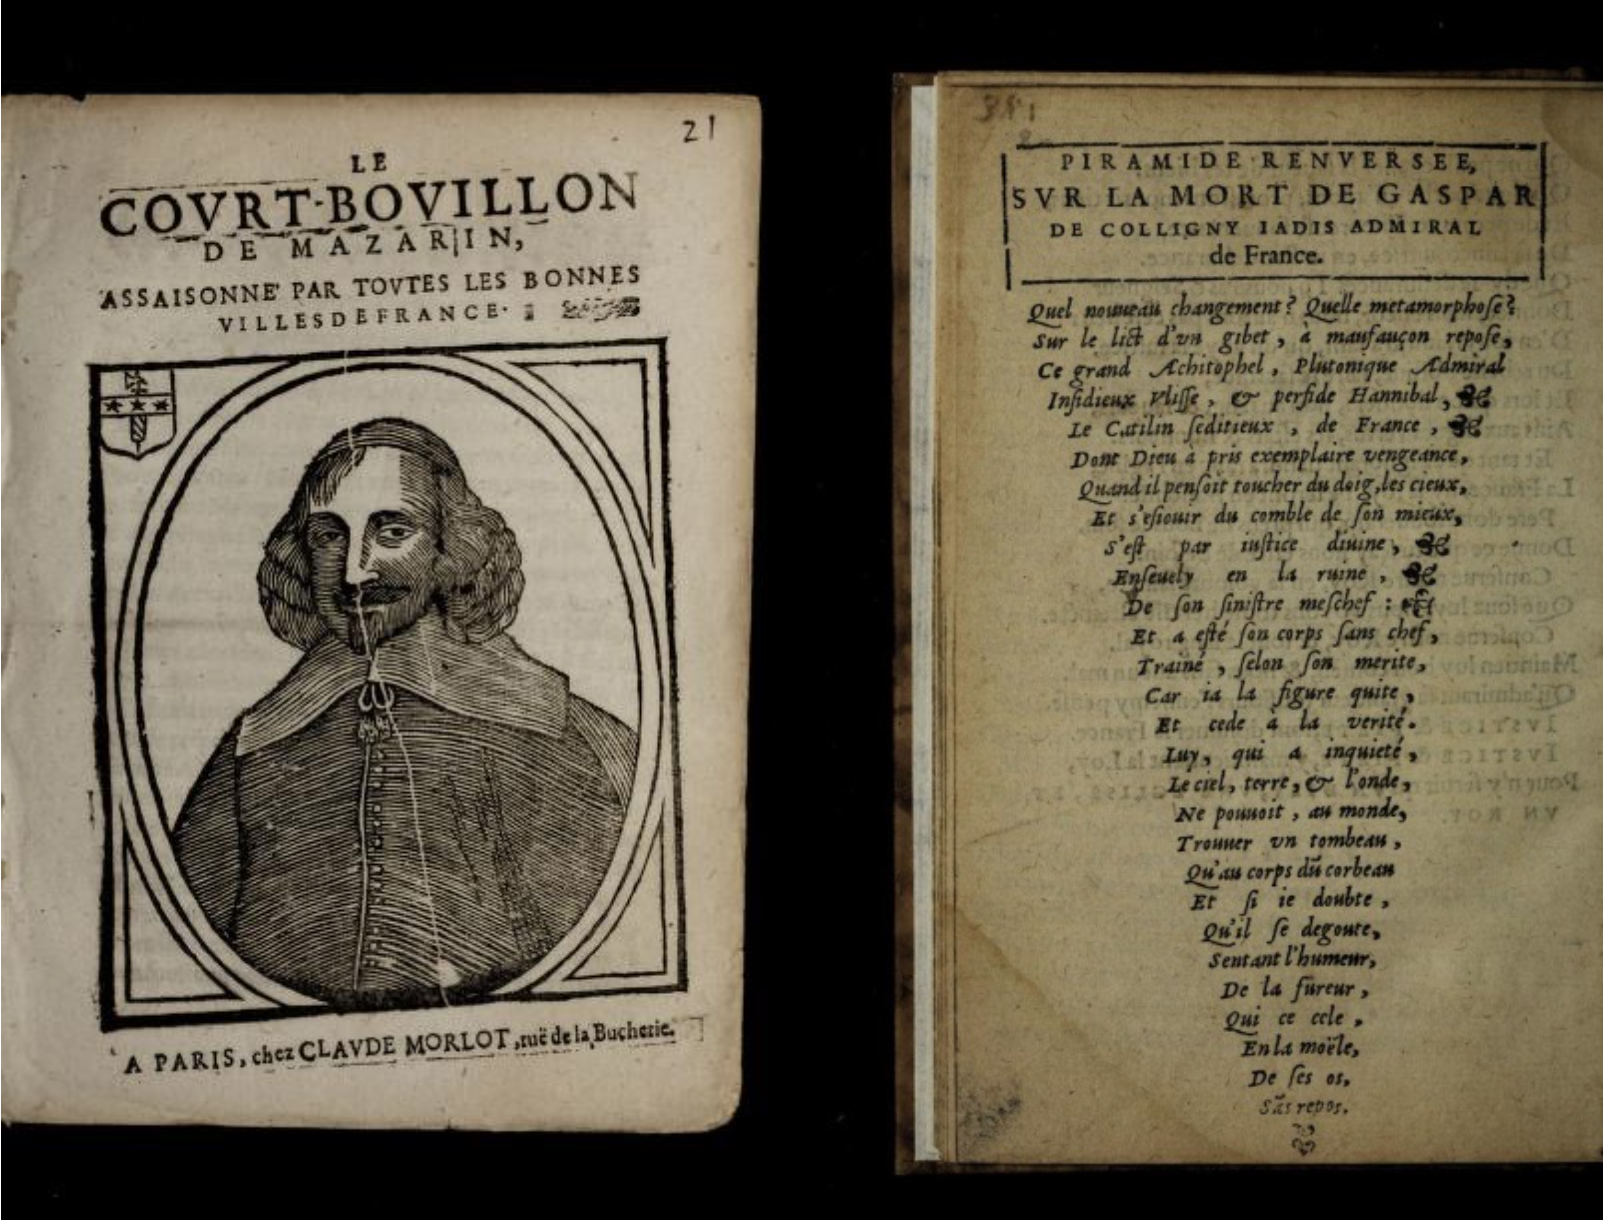 21
LE
COVRT-BOVILLON
DE MAZARIN,
ASSAISONNE' PAR TOVTES LES BONNES
VILLES DE FRANCE.
A PARIS, chez CLAVDE MORLOT, ruë de la Bucherie.
PIRAMIDE RENVERSEE,
SVR LA MORT DE GASPAR
DE COLLIGNY IADIS ADMIRAL
de France.
Quel nouueau changement? Quelle metamorphoſe?
Sur le lict d'vn gibet, à maufauçon repoſe,
Ce grand Achitophel, Plutonique Admiral
Inſidieux Vliſſe, & perfide Hannibal,
Le Catilin ſeditieux, de France,
Dont Dieu à pris exemplaire vengeance,
Quand il penſoit toucher du doig, les cieux,
Et s'eſiouir du comble de ſon mieux,
S'eſt par iuſtice diuine,
Enſeuely en la ruine,
De ſon ſiniſtre meſchef:
Et a eſté ſon corps ſans chef,
Trainé, ſelon ſon merite,
Car ia la figure quite,
Et cede à la verité.
Luy, qui a inquieté,
Le ciel, terre, & l'onde,
Ne pouuoit, au monde,
Trouuer vn tombeau,
Qu'au corps dũ corbeau
Et ſi ie doubte,
Qu'il ſe degoute,
Sentant l'humeur,
De la fureur,
Qui ce cele,
En la moële,
De ſes os,
Sãs repos.